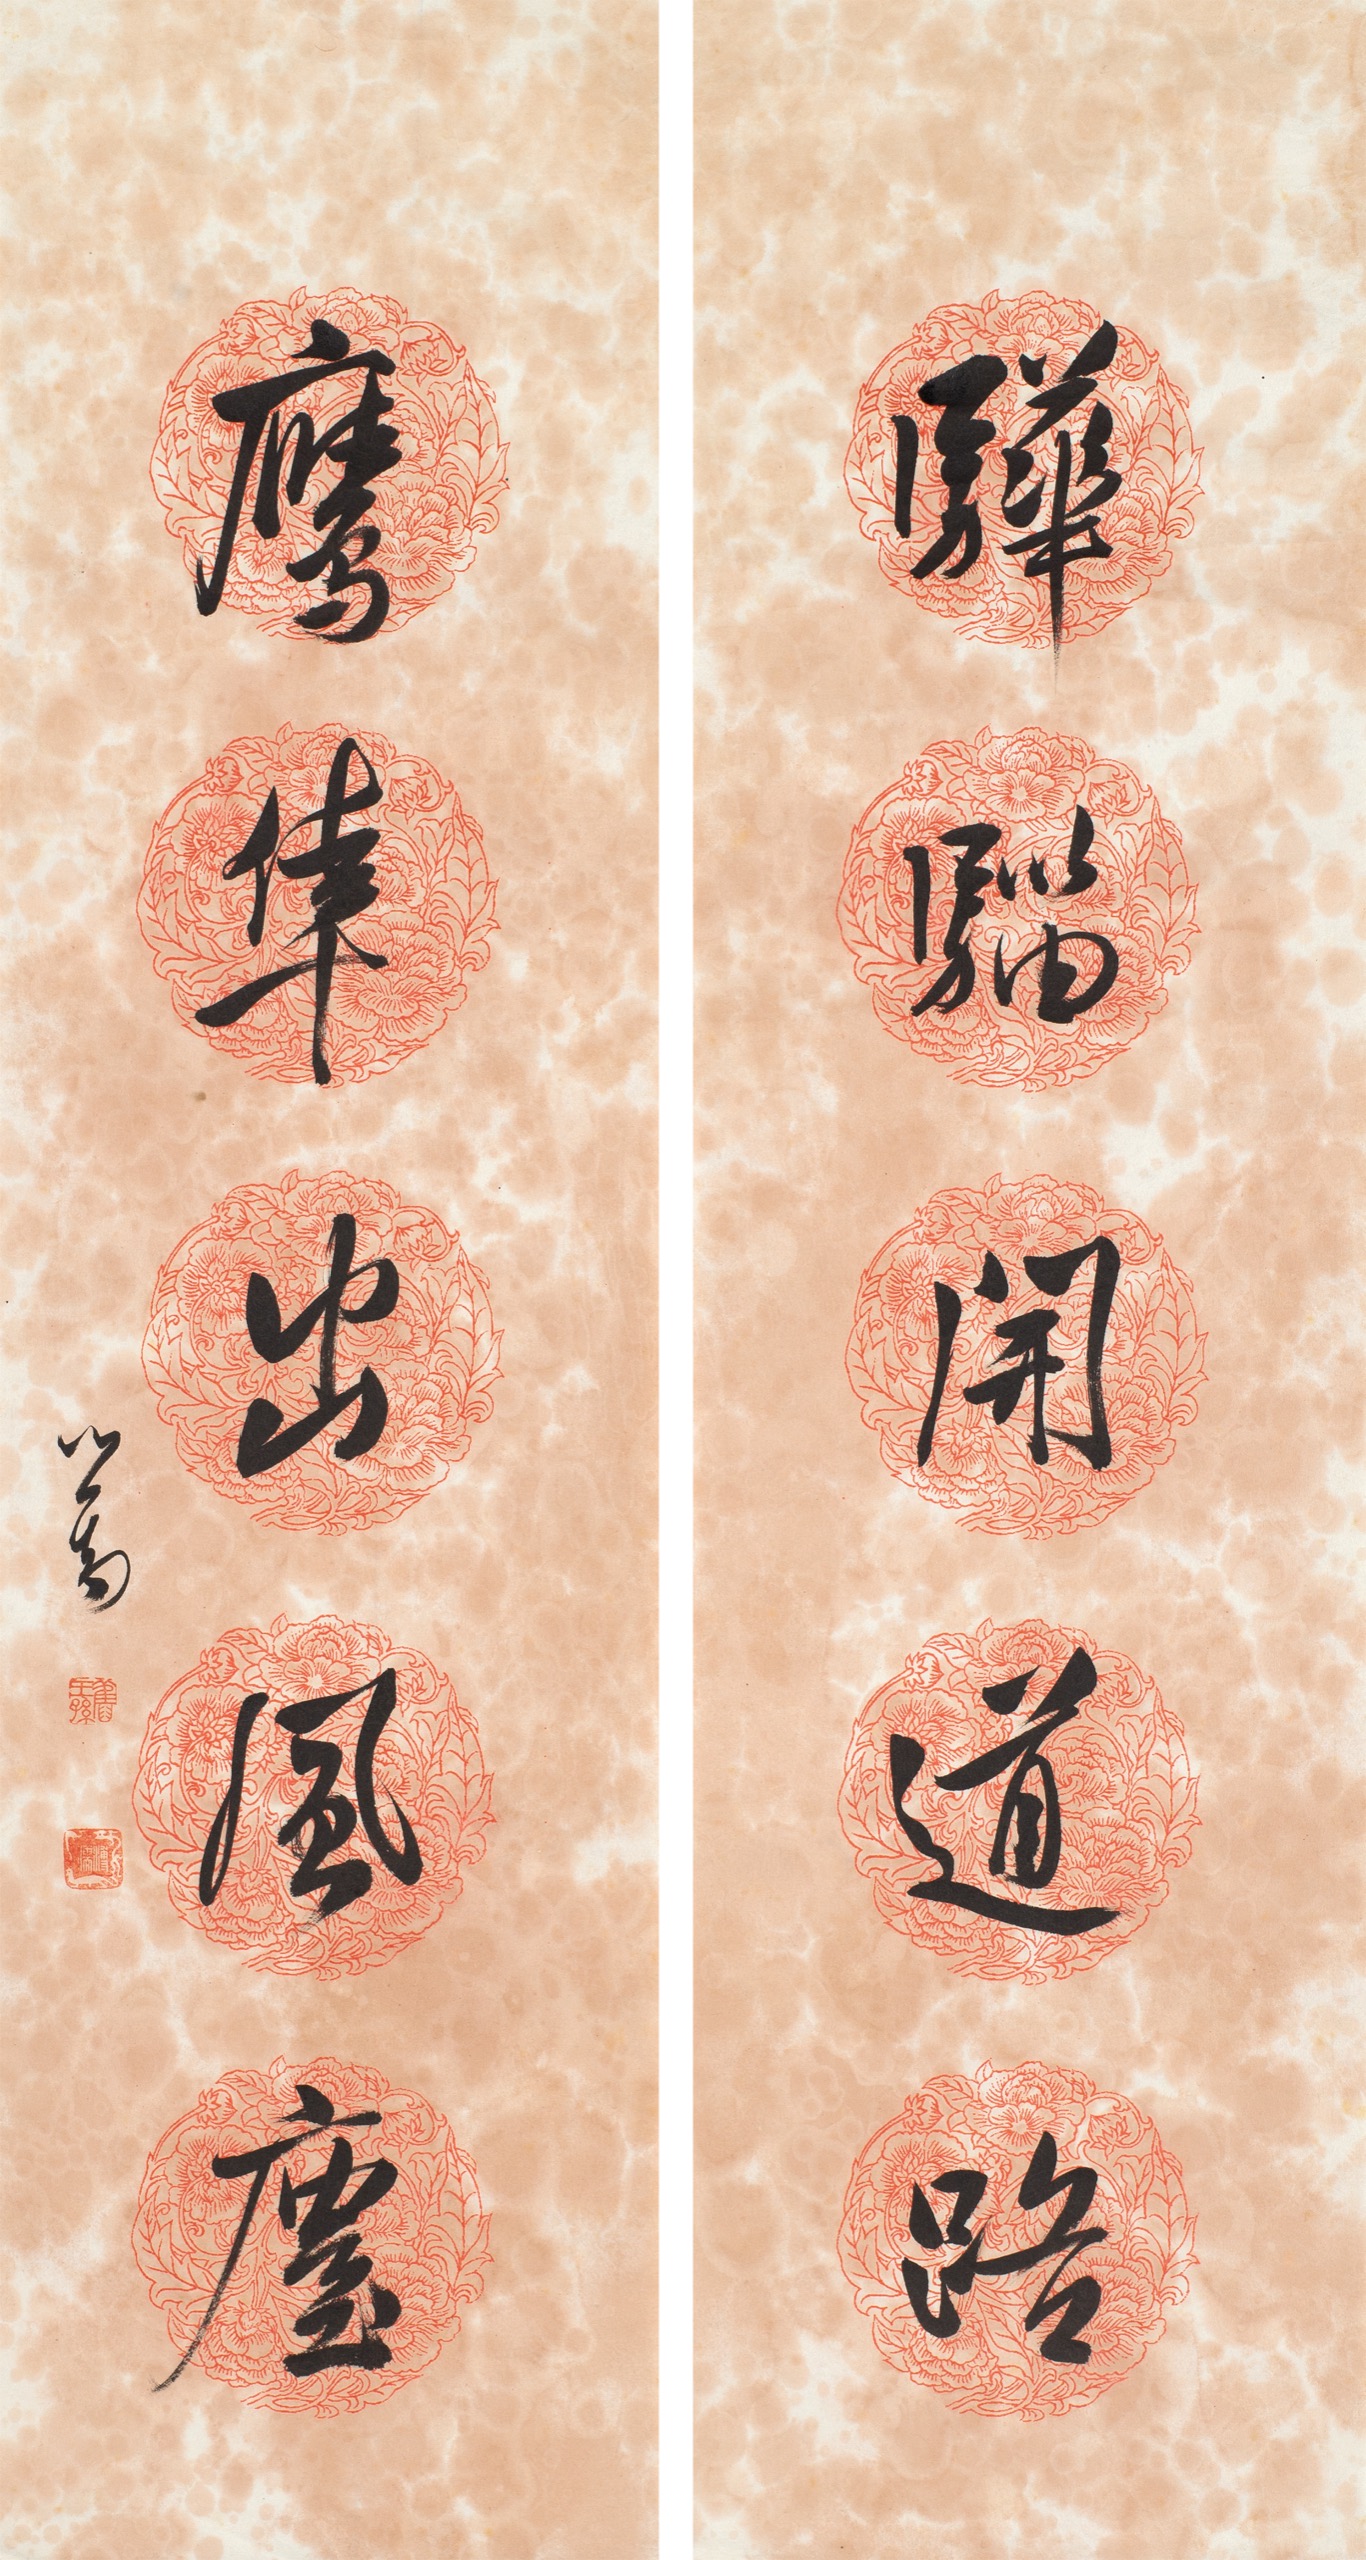 驊騮開道路
鷹隼出風塵
心畬
舊王孫